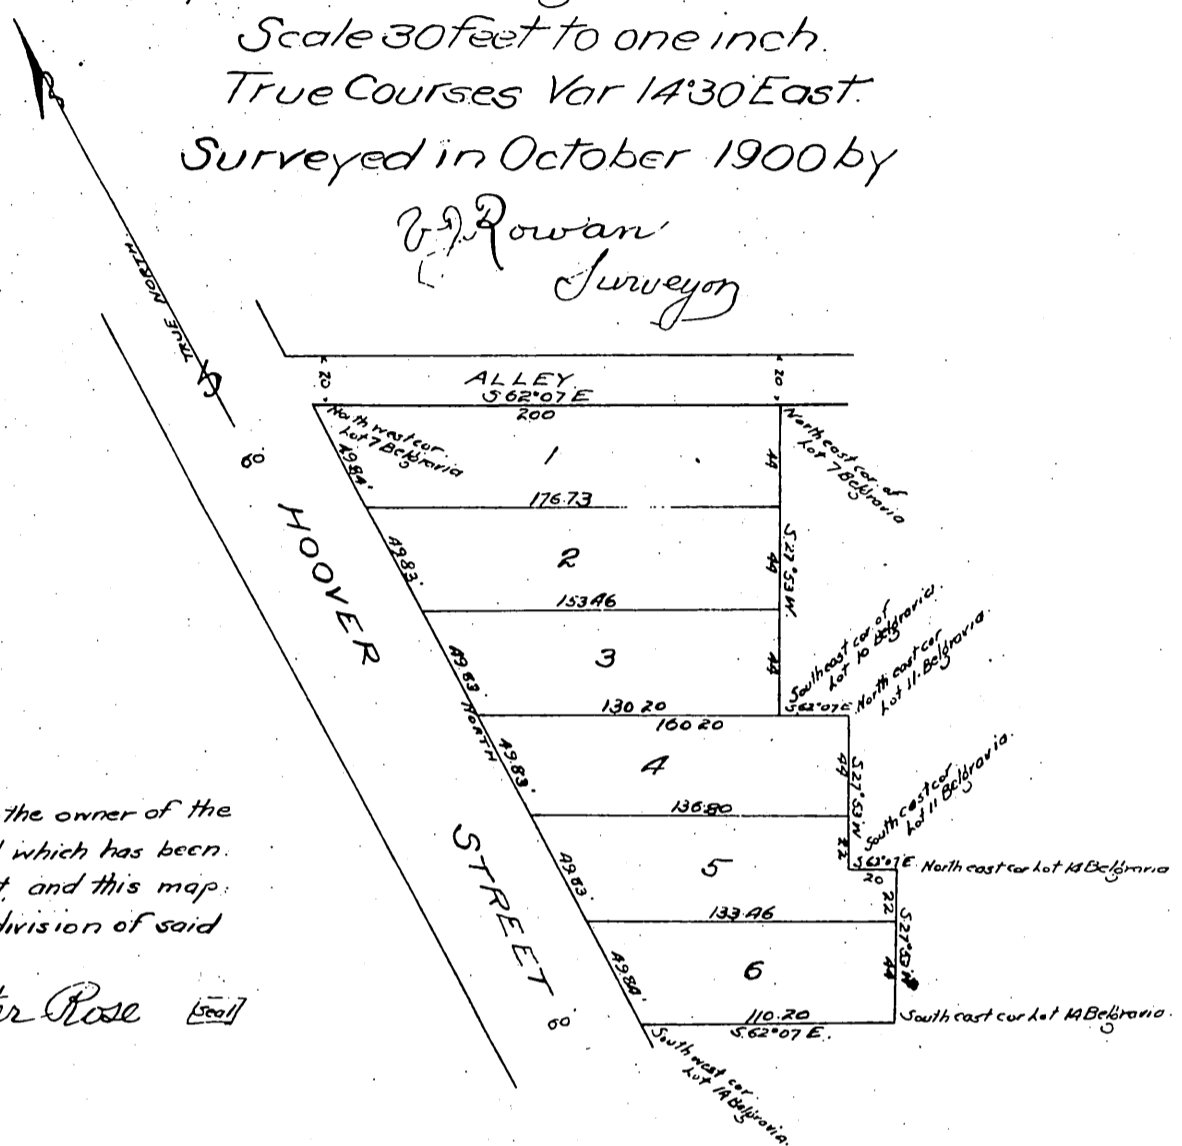 Scale 30 feet to one inch.
True Courses Var 14°30 East.
Surveyed in October 1900 by
Rowan
Surveyor
TRUE NORTH
20
20
ALLEY
S62°07E
200
Northwest cor.
Lot 7 Belgravia
Northeast cor. of
Lot 7 Belgravia
60
HOOVER
49.84'
1
44
176.73
49.83'
2
44
S.27°53W.
153.46
49.83
3
44
Southeast cor of
Lot 10 Belgravia.
North east cor
Lot 11. Belgravia.
130.20
S.62°07E.
160.20
NORTH
49.83'
4
44
S.27°53W
136.80
South east cor
Lot 11 Belgravia.
22
S62°07E.
North east cor Lot 14 Belgravia
20
STREET
49.83'
5
22
133.46
S.27°53W
49.84'
6
44
110.20
S.62°07E.
South east cor Lot 14 Belgravia.
60'
South west cor.
Lot 14 Belgravia.
the owner of the
which has been
and this map
division of said
Rose [Seal]